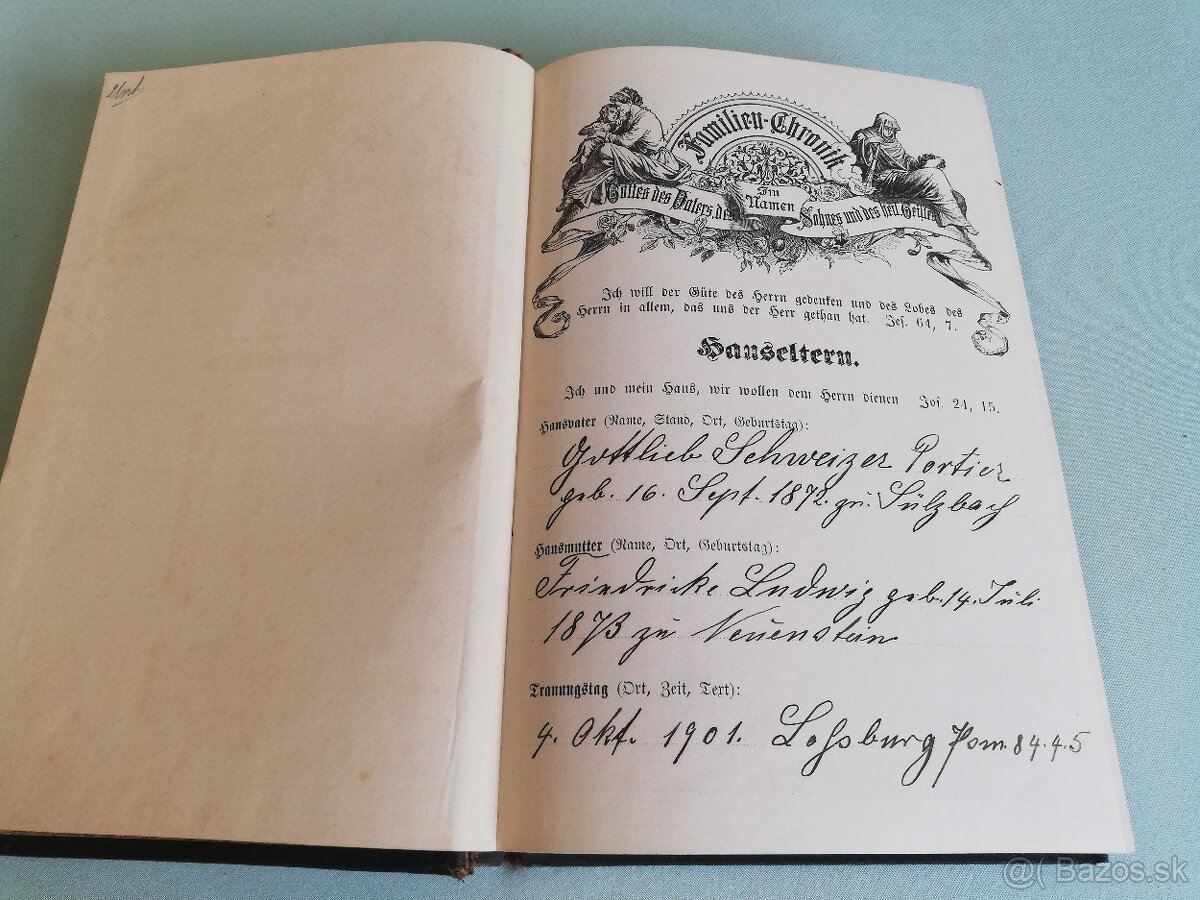 Familien-Chronik
Im
Namen
Gottes des Vaters, des Sohnes und des heil. Geistes
Ich will der Güte des Herrn gedenken und des Lobes des
Herrn in allem, das uns der Herr gethan hat. Jes. 64, 7.
Hauseltern.
Ich und mein Haus, wir wollen dem Herrn dienen Jos. 24, 15.
Hausvater (Name, Stand, Ort, Geburtstag):
Gottlieb Schweizer Portier
geb. 16. Sept. 1872. zu Sülzbach
Hausmutter (Name, Ort, Geburtstag):
Friedricke Ludwig geb. 14. Juli
1873 zu Neuenstein
Trauungstag (Ort, Zeit, Text):
4. Okt. 1901. Loßburg 84.4.5
Bazos.sk